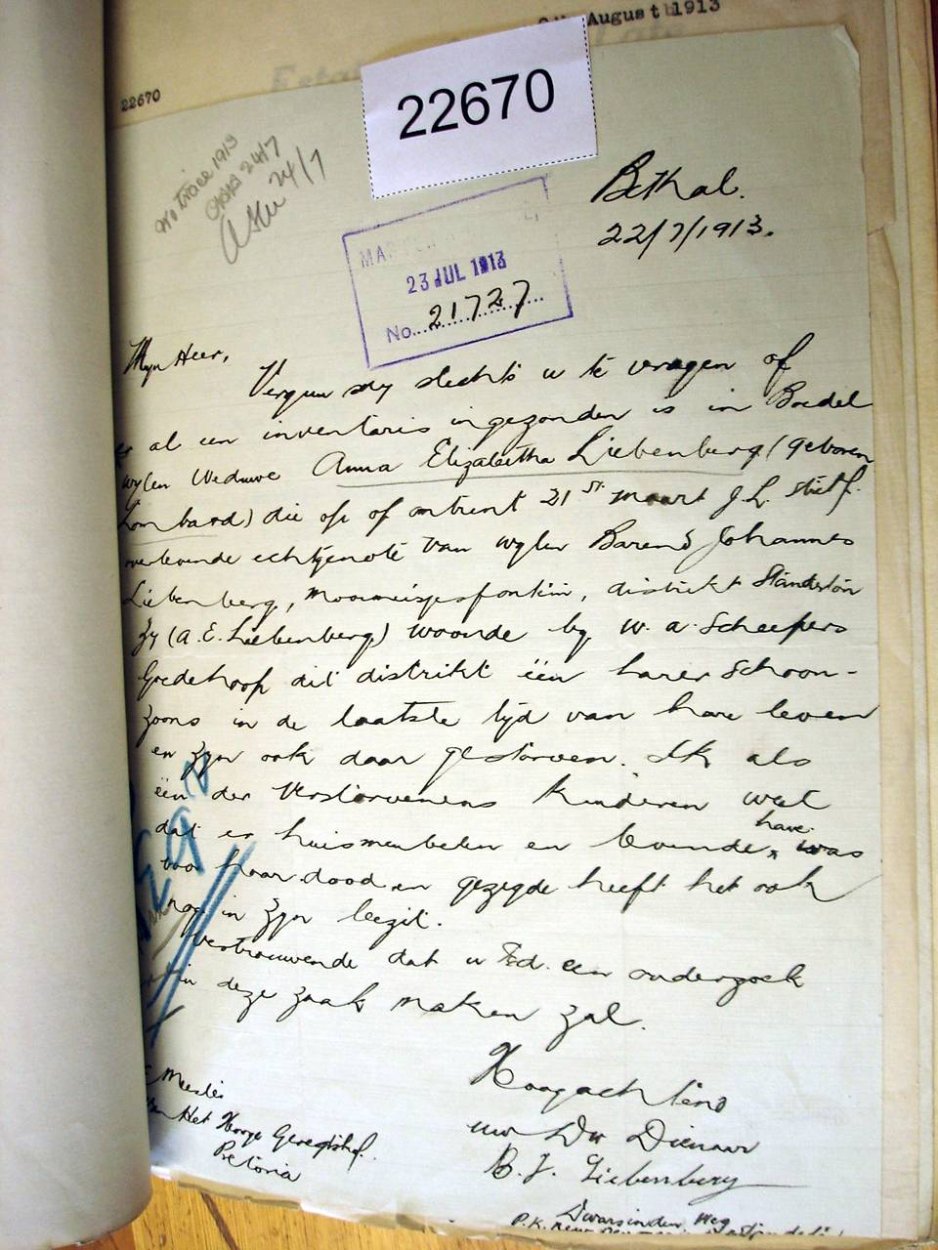 August 1913
22670
22670
No trace 1913
24/7
24/7
Bethal.
22/7/1913.
23 JUL 1913
No. 21727
Myn Heer,
Vergun my slechts u te vragen of
er al een inventaris ingezonden is in Boedel
wylen Weduwe Anna Elizabetha Liebenberg (geboren
Lombard) die op of omtrent 21st Maart J.L. stierf.
overlevende echtgenote van wylen Barend Johannes
Liebenberg, Mooimeisjesfontein, distrikt Standerton
Zy (A. E. Liebenberg) woonde by W. A. Scheepers
Goedehoop dit distrikt één harer Schoon-
zoons in de laatste tyd van hare leven
en zyn ook daar gestorven. Ik als
één der Verstorvenens Kinderen weet
dat er huismeubelen en levende have was
voor haar dood en gezegde heeft het ook
nog in zyn bezit.
Vertrouwende dat u Ed. een onderzoek
in deze zaak maken zal.
Hoogachtend
uw Dw Dienaar
B. J. Liebenberg
Meester
van Het Hooge Geregtshof.
Pretoria
Dwarsindenweg
P.K.